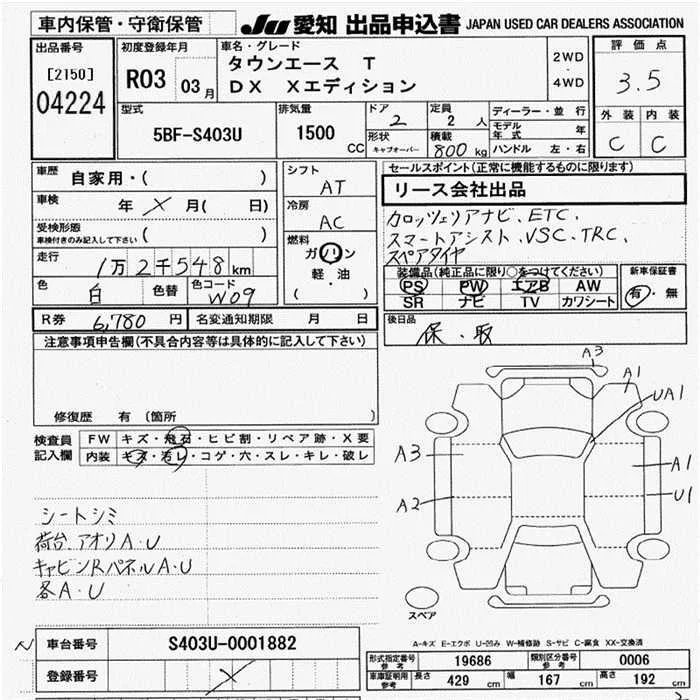 車内保管・守衛保管
JU 愛知 出品申込書 JAPAN USED CAR DEALERS ASSOCIATION
出品番号 [2150] 04224
初度登録年月 R03 03月
車名・グレード タウンエース T
DX Xエディション
2WD・4WD
評価点 3.5
外装 内装
C C
型式 5BF-S403U
排気量 1500 CC
ドア 2
形状 キャブオーバー
定員 2 人
積載 800 kg
ディーラー・並行
モデル年式 年
ハンドル 左・右
車歴 自家用・( )
車検 年 × 月( 日)
受検形態 車検付きのみ記入して下さい ( )
走行 1万2千548km
色 白 色替 色コード W09
シフト AT
冷房 AC
燃料 ガソリン
軽・油
( )
セールスポイント(正常に機能するものに限ります)
リース会社出品
カロッツェリアナビ、ETC、
スマートアシスト、VSC、TRC、
スペアタイヤ
装備品(純正品に限り○をつけてください)
PS PW エアB AW
SR ナビ TV カワシート
新車保証書
有・無
R券 6,780 円 名変通知期限 月 日
後日品 保・取
注意事項申告欄(不具合内容等は具体的に記入して下さい)
修復歴 有 (箇所 )
検査員記入欄
FW キズ・飛石・ヒビ割・リペア跡・X要
内装 キズ・汚レ・コゲ・穴・スレ・キレ・破レ
A3
A1
UA1
A3
A1
A2
U1
シートシミ
荷台アオリA・U
キャビンRパネルA・U
各A・U
スペア
A-キズ E-エクボ U-凹み W-補修跡 S-サビ C-腐食 XX-交換済
車台番号 S403U-0001882
登録番号 ×
形式指定番号参考 19686 類別区分番号参考 0006
車庫証明用参考 長さ 429 cm 幅 167 cm 高さ 192 cm